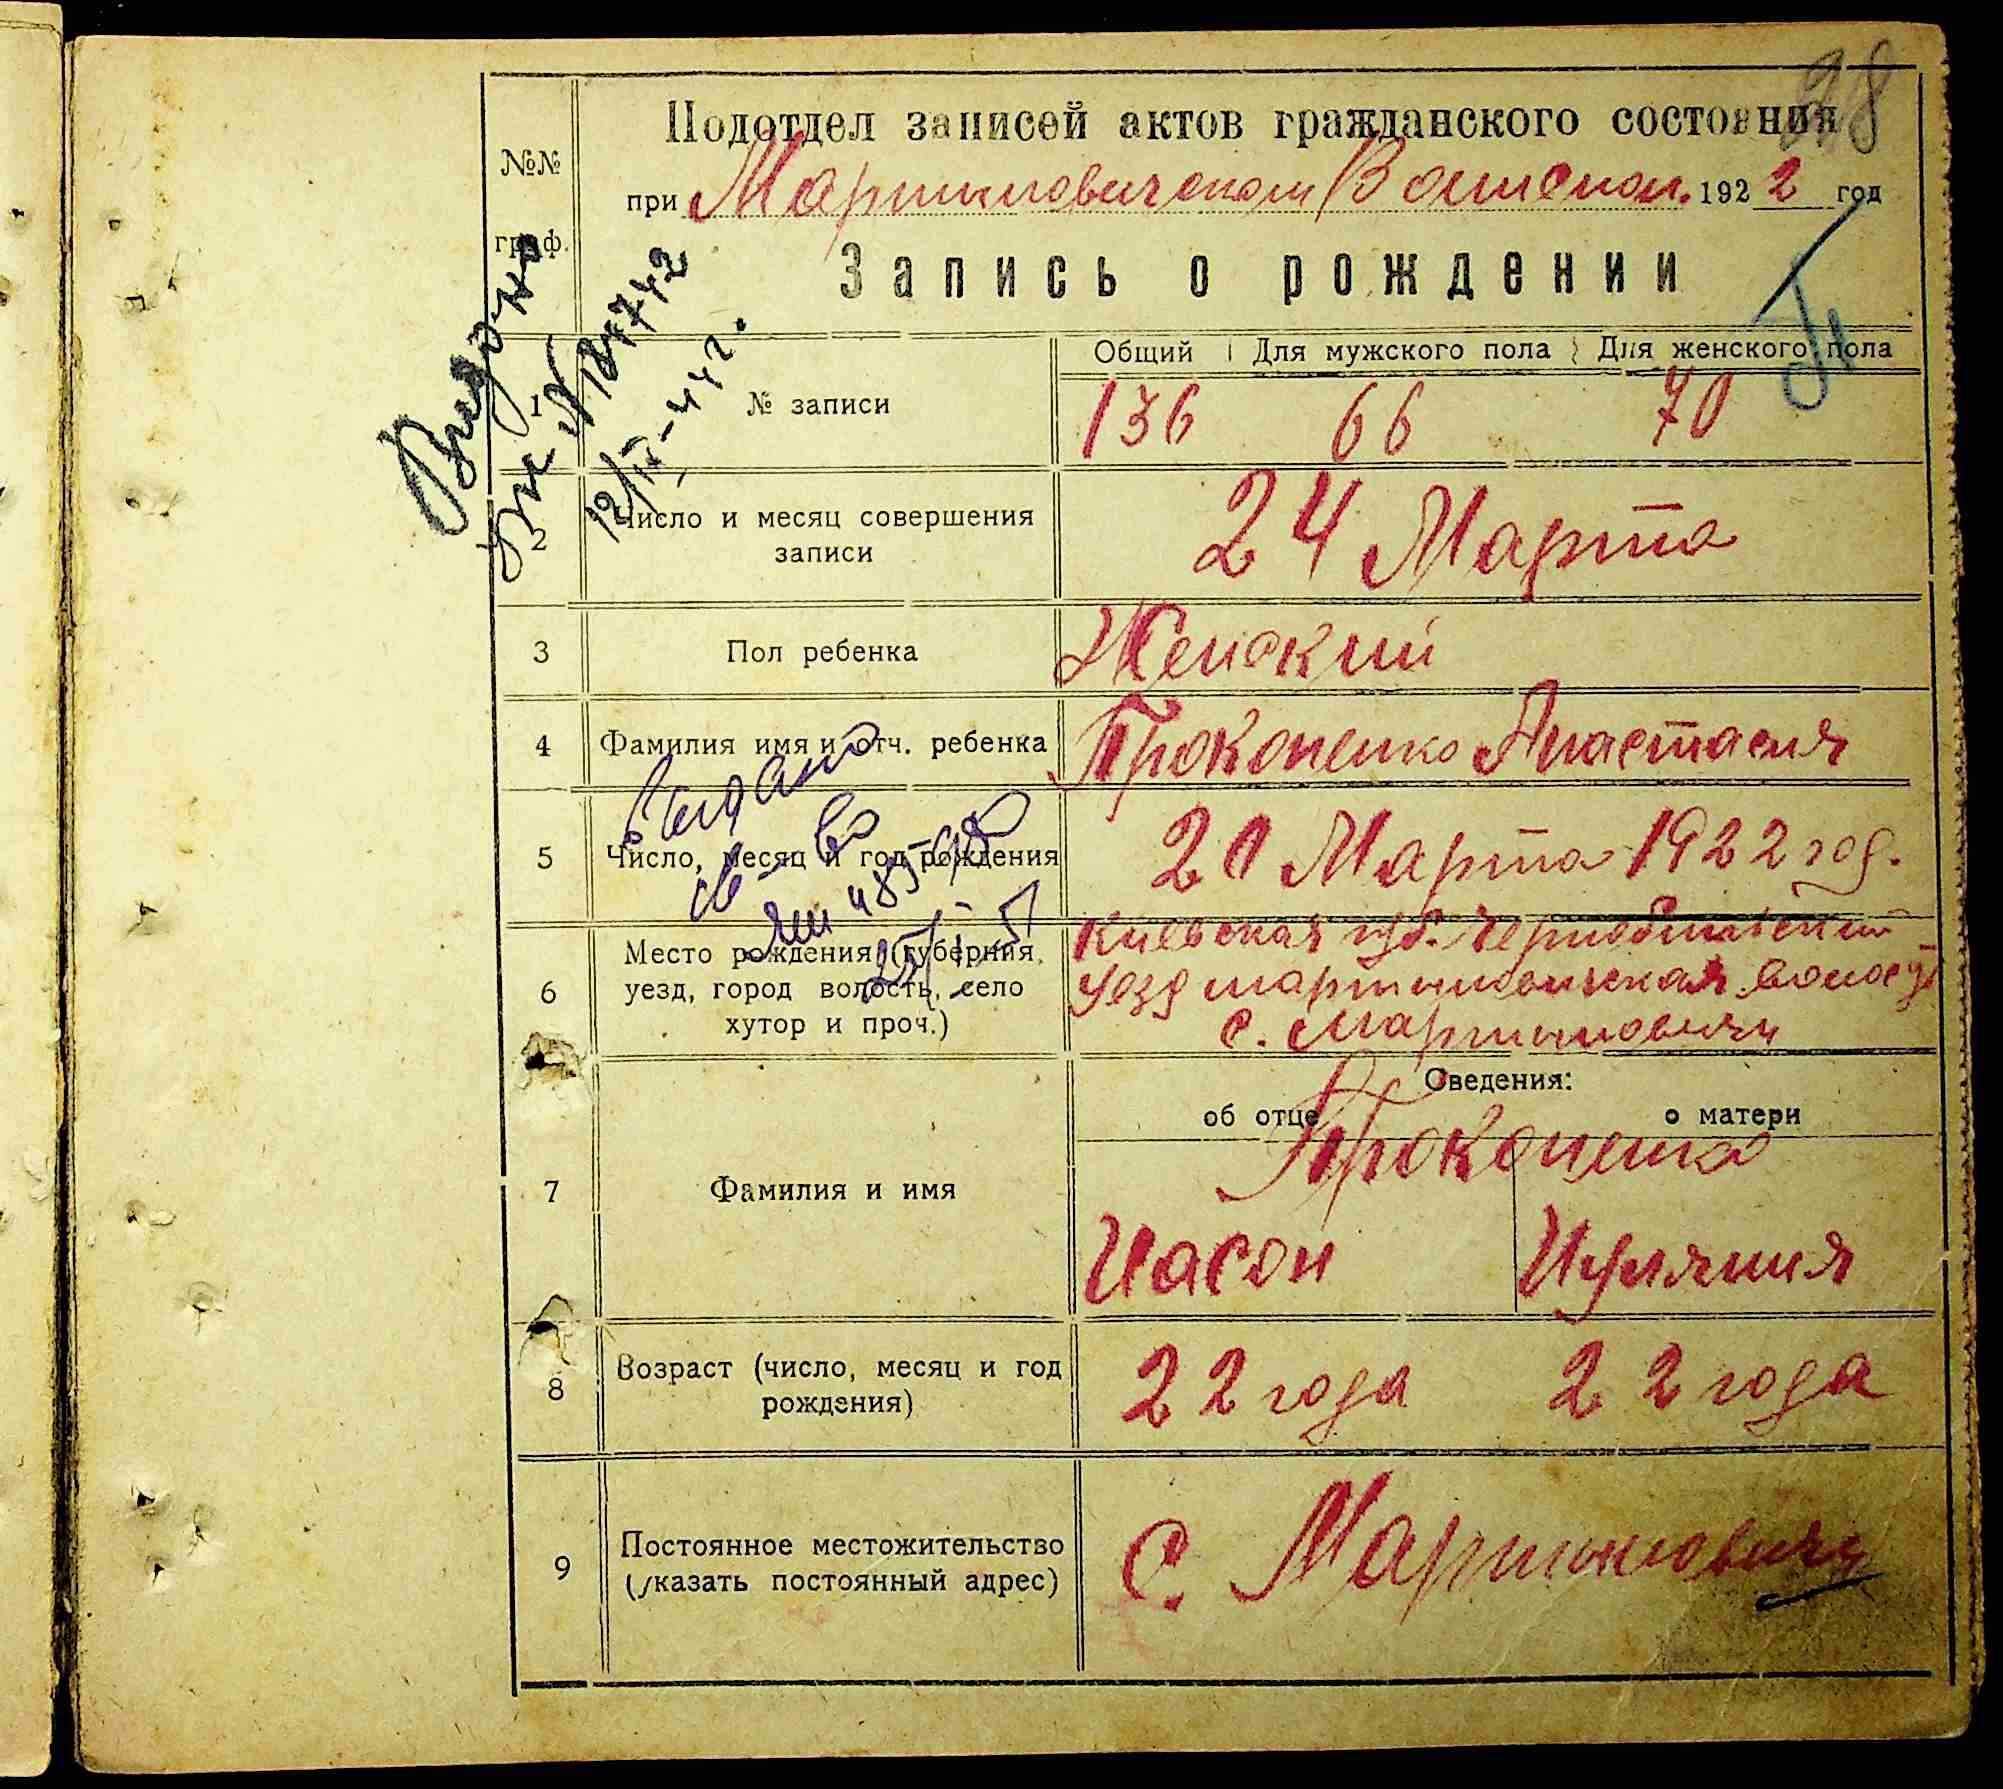 98
Подотдел записей актов гражданского состояния
при Мартыновичском 1922 год
№№ граф.
Запись о рождении
Видано
12/IV-44г.
Общий Для мужского пола Для женского пола
1 № записи 136 66 70
2 Число и месяц совершения записи 24 Марта
3 Пол ребенка Женский
4 Фамилия имя и отч. ребенка Прокопенко Анастасия
5 Число, месяц и год рождения 20 Марта 1922 год.
6 Место рождения (губерния, уезд, город волость, село хутор и проч.)
Киевская губ. Чернобыльский
уезд мартыновичская волость
с. Мартыновичи
Выдано
св-во
Сведения:
об отце о матери
7 Фамилия и имя Прокопенко
Иасон Иуляния
8 Возраст (число, месяц и год рождения) 22 года 22 года
9 Постоянное местожительство (указать постоянный адрес) с. Мартыновичи